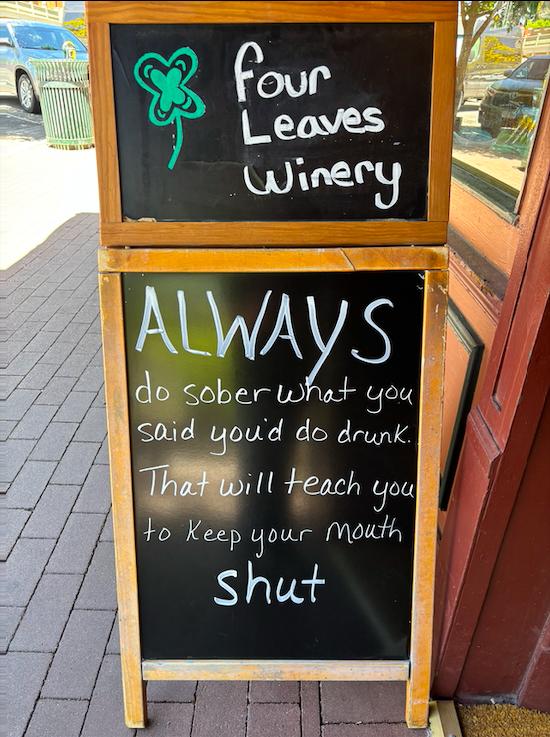 Four
Leaves
Winery
ALWAYS
do sober what you
said you'd do drunk.
That will teach you
to Keep your mouth
shut